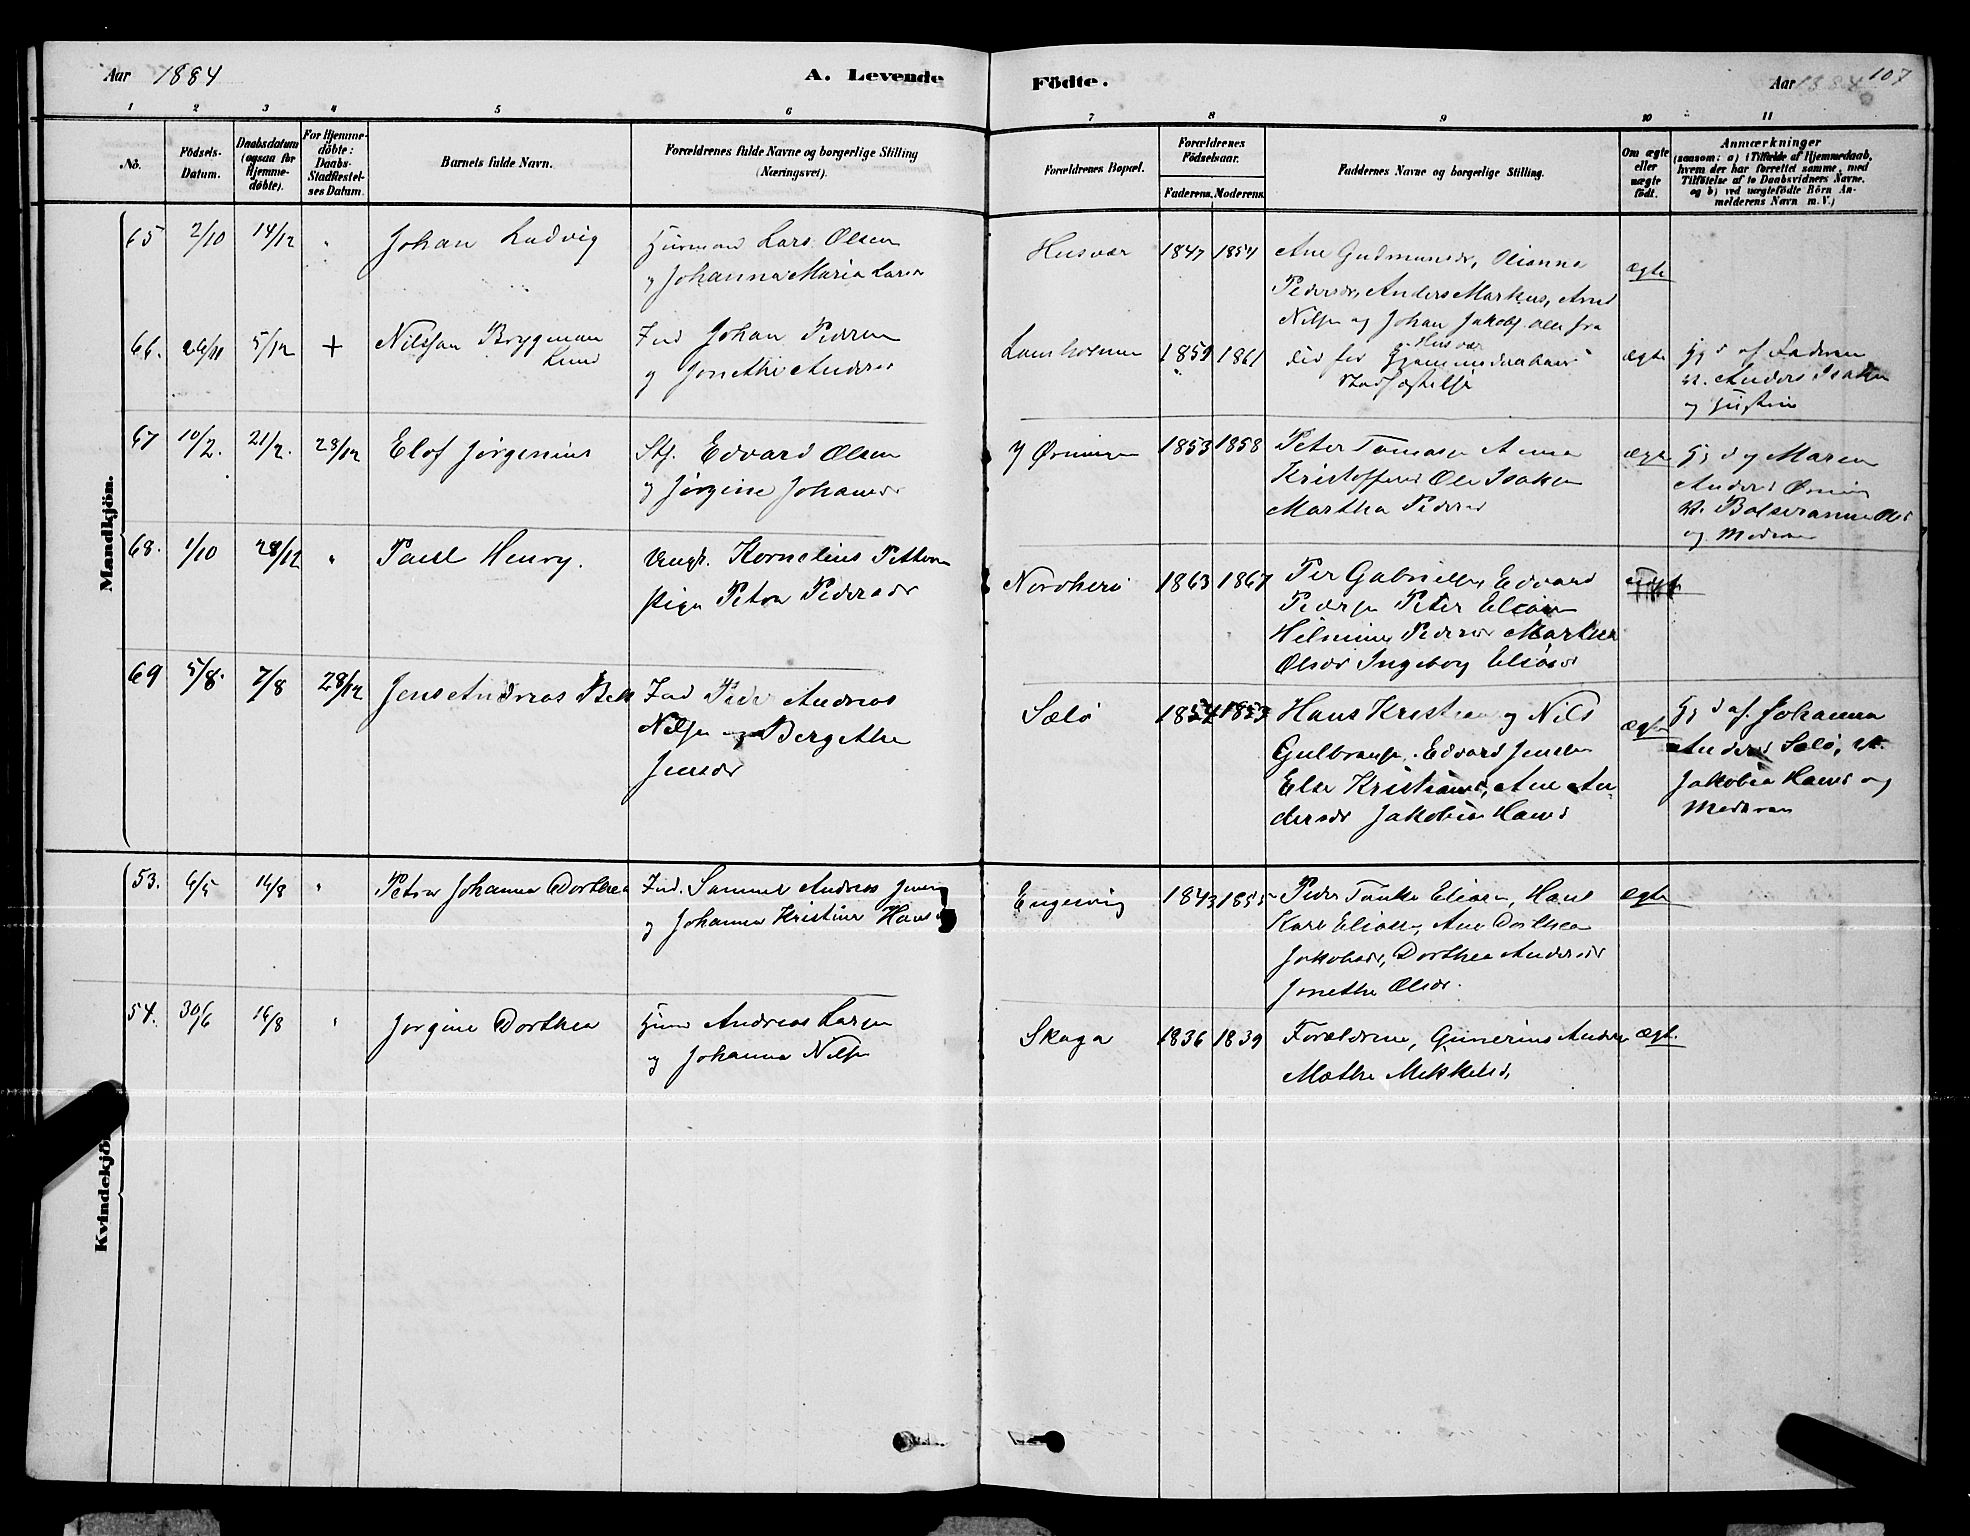 Aar 1884
A. Levende
Födte.
Aar 1884
107
1 2 3 4 5 6 7 8 9 10 11
No.
Födsels-
Datum.
Daabsdatum
(ogsaa for
Hjemme-
döbte).
For Hjemme-
döbte:
Daabs-
Stadfæstel-
ses Datum.
Barnets fulde Navn.
Forældrenes fulde Navne og borgerlige Stilling
(Næringsvei).
Forældrenes Bopæl.
Forældrenes
Födselsaar.
Faderens. Moderens.
Faddernes Navne og borgerlige Stilling.
Om ægte
eller
uægte
födt.
Anmærkninger
(saasom: a) i Tilfælde af Hjemmedaab,
hvem der har forrettet samme, med
Tilföielse af to Daabsvidners Navne.
og b) ved uægtefödte Börn An-
melderens Navn m. V.)
Mandkjön.
65 2/10 14/12 "
Johan Ludvig
Lars Olsen
og Johanna Maria Larsd
Husvær
1847 1854
Ane Gudmunsdr, Olianna
Pedersdr, Anders Markus, Arnt
Nilsen og Johan Jakobs. alle fra
Husvær
ægte
66. 26/11 5/12 +
Nilsson Bryggman
Lund
Ind Johan Peders
og Jonethe Andersd
1859 1861
død før Hjemmedaabens
Stadfæstelse
ægte
Hj d af Faderen
v. Anders Isaksen
og
67 10/2. 21/2. 28/12
Elof Jørgenius
Stf. Edvard Olsen
og Jørgine Johansdr
Y Ørningen
1853 1858
Peter Tomasen Anna
Kristoffersd Ole Isaksen
Martha Pedersd
ægte
Hj d af Maren
Andersd Ørning
v.
og Moderen
68. 1/10 28/12 "
Paul Henry.
Ungk. Kornelius Petters
Pige Petra Pedersdr
Nordherø
1863 1867
Per Gabrielsen, Edvard
Peders Peter Eliasen
Hilmine Pedersdr Martha
Olsdr Ingeborg Eliasd
69 5/8. 7/8 28/12
Jens Andreas Bek
Ind Peder Andreas
Nilsen og Bergethe
Jensdr
Sælø
1854 1853
Hans Kristian og Nils
Gulbrands. Edvard Jensen
Else Kristiansd, Ane An-
dersdr Jakobia Hansd
ægte
Hj d af. Johanna
Andersd Sælø, v.
Jakobia Hansd og
Moderen
Kvindekjön
53. 6/5 16/8 "
Petra Johanna Dorthea
Ind. Samuel Andreas Jensen
og Johanna Kristine Hansd
Engesvig
1843 1855
Peder Tanke Eliasen, Hans
Karl Eliasen, Ane Dorthea
Jakobsdr, Dorthea Andersdr
Jonethe Olsdr.
ægte
54. 30/6 16/8 "
Jorgine Dorthea
Andreas Larsen
og Johanna Nilsd
Skaga
1836 1839
Forældrene, Gunerius Anders
Mathe Mikkelsd,
ægt.